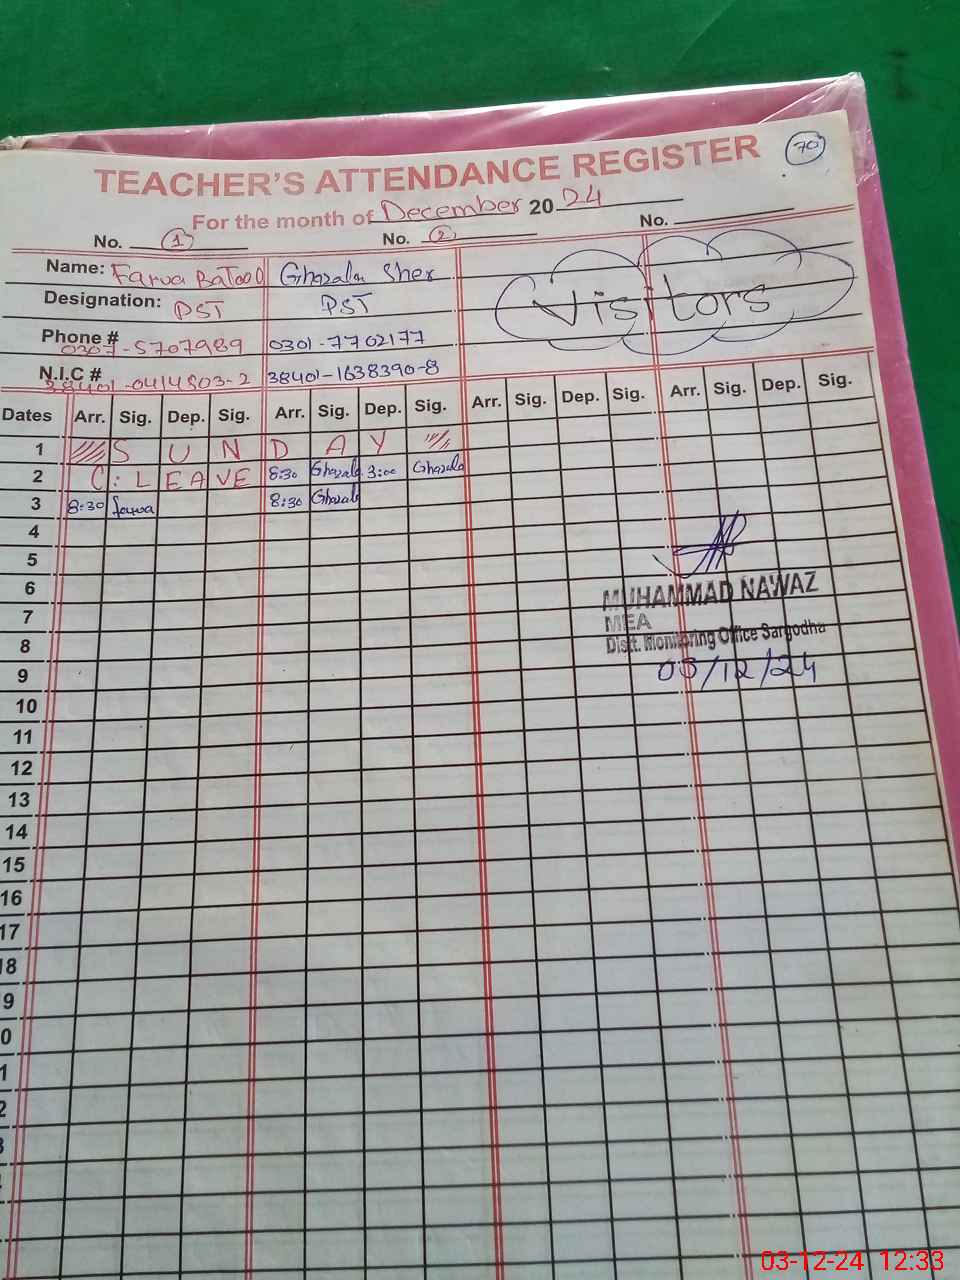 70
TEACHER'S ATTENDANCE REGISTER
For the month of December 20 24
No. 1 No. 2 No.
Name: Farva Batool Ghazala Sher Visitors
Designation: PST PST
Phone # 0307-5707989 0301-7702177
N.I.C # 38401-0414803-2 38401-1638390-8
Dates Arr. Sig. Dep. Sig. Arr. Sig. Dep. Sig. Arr. Sig. Dep. Sig. Arr. Sig. Dep. Sig.
1 S U N D A Y
2 C: LEAVE 8:30 Ghazala 3:00 Ghazala
3 8:30 farwa 8:30 Ghazala
4
5
6
7
8
9
10
11
12
13
14
15
16
17
18
9
0
1
2
3
MUHAMMAD NAWAZ
MEA
Distt. Monitoring Office Sargodha
03/12/24
03-12-24 12:33